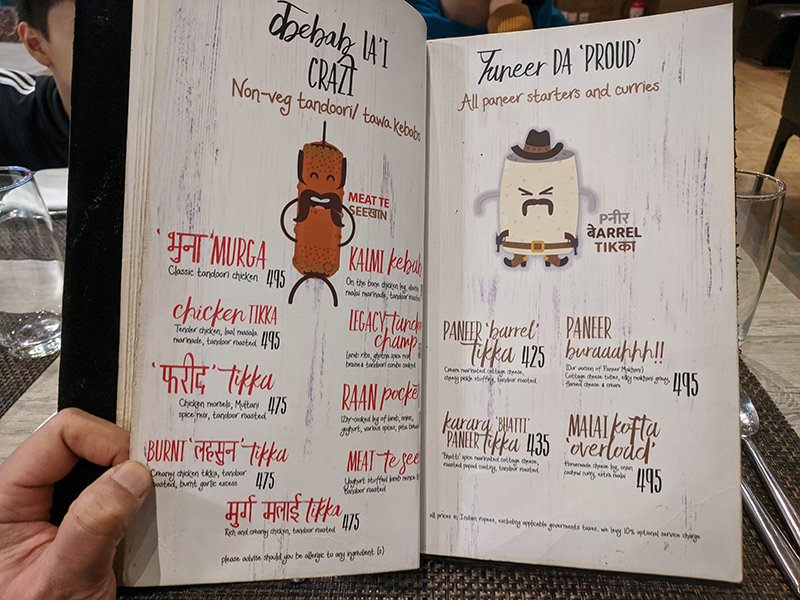 कbebab LA'I
CRAZI
Non-veg tandoori/ tawa kebabs
MEAT TE
SEEKहान
'भुना' MURGA
Classic tandoori chicken 495
chicken TIKKA
Tender chicken, laal masala
marinade, tandoor roasted 495
'फरीद' tikka
Chicken morsels, Multani
spice mix, tandoor roasted 475
BURNT 'लहसुन' tikka
Creamy chicken tikka, tandoor
roasted, burnt garlic excess 475
मुर्ग मलाई tikka
Rich and creamy chicken, tandoor roasted 475
please advise should you be allergic to any ingredient (s)
KALMI kebab
On the bone chicken leg,
malai marinade, tandoor roasted
LEGACY
champ
Lamb ribs, ghotna spice rub,
braised tandoori combo cooked
RAAN pocket
12hr-cooked leg of lamb, onion,
yoghurt, various spices, pita bread
MEAT te see
Yoghurt stuffed lamb mince
tandoor roasted
Funeer DA 'PROUD'
All paneer starters and curries
Pनीर
बेARREL
TIKका
PANEER 'barrel'
tikka 425
Cream marinated cottage cheese,
cheesy pickle stuffing, tandoor roasted
PANEER
buraaahhh!!
(Our version of Paneer Makhani)
Cottage cheese tubes, silky makhani gravy,
flamed cheese & cream 495
karara 'BHATTI'
PANEER tikka 435
'Bhatti' spice marinated cottage cheese,
roasted papad coating, tandoor roasted
MALAI kofta
'overload'
Homemade cheese log, onion
cashew curry, extra malai 495
all prices in Indian rupees, excluding applicable governments taxes, we levy 10% optional service charge